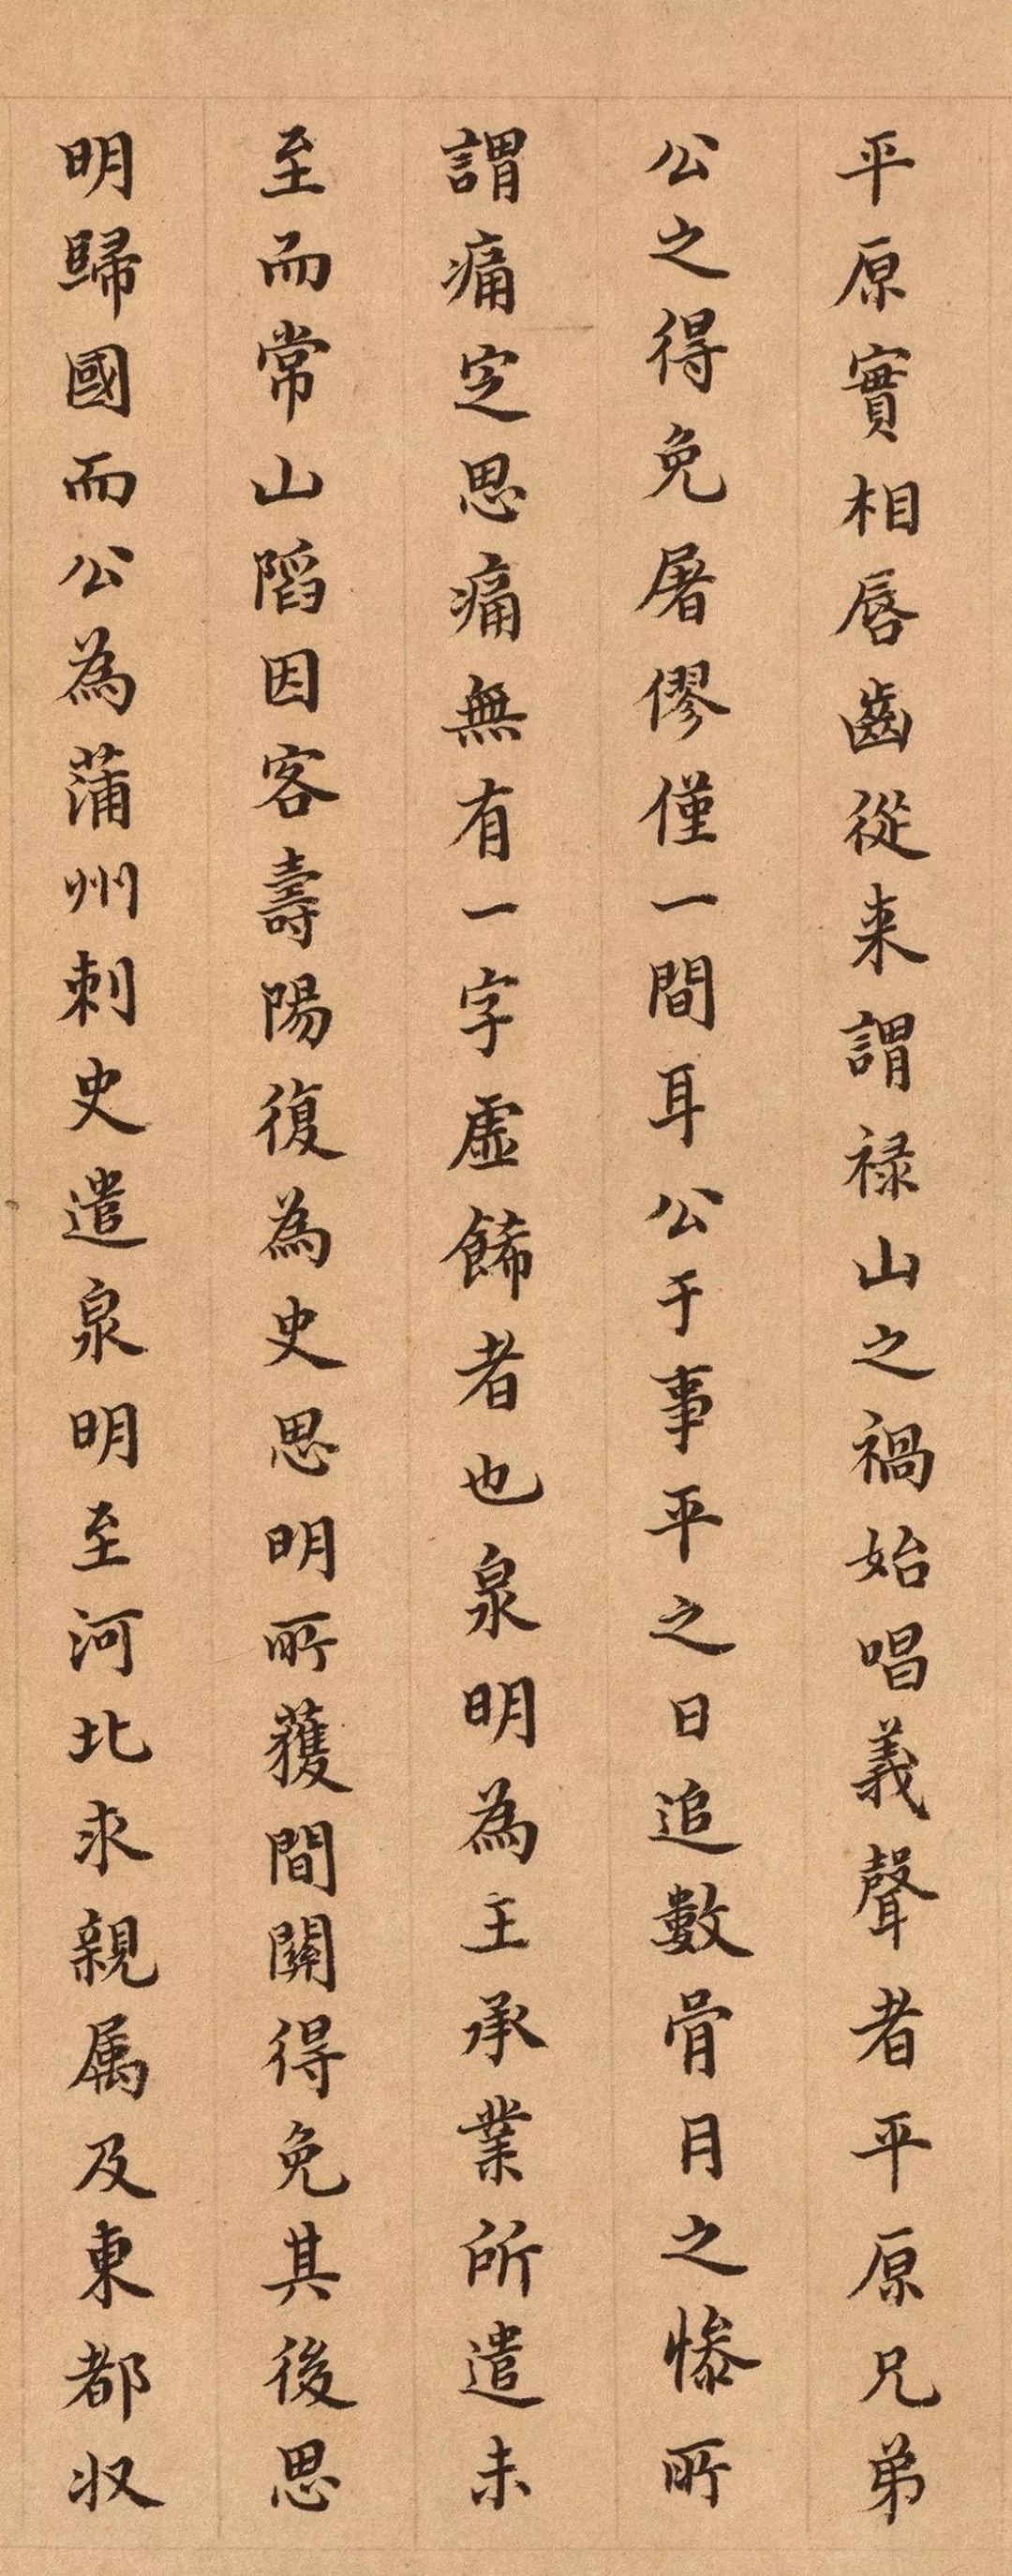 平原實相唇齒從来謂禄山之禍始唱義聲者平原兄弟
公之得免屠僇僅一間耳公于事平之日追數骨月之惨所
謂痛定思痛無有一字虚餙者也泉明為王承業所遣未
至而常山䧟因客壽陽復為史思明所獲間關得免其後思
明歸國而公為蒲州刺史遣泉明至河北求親属及東都収